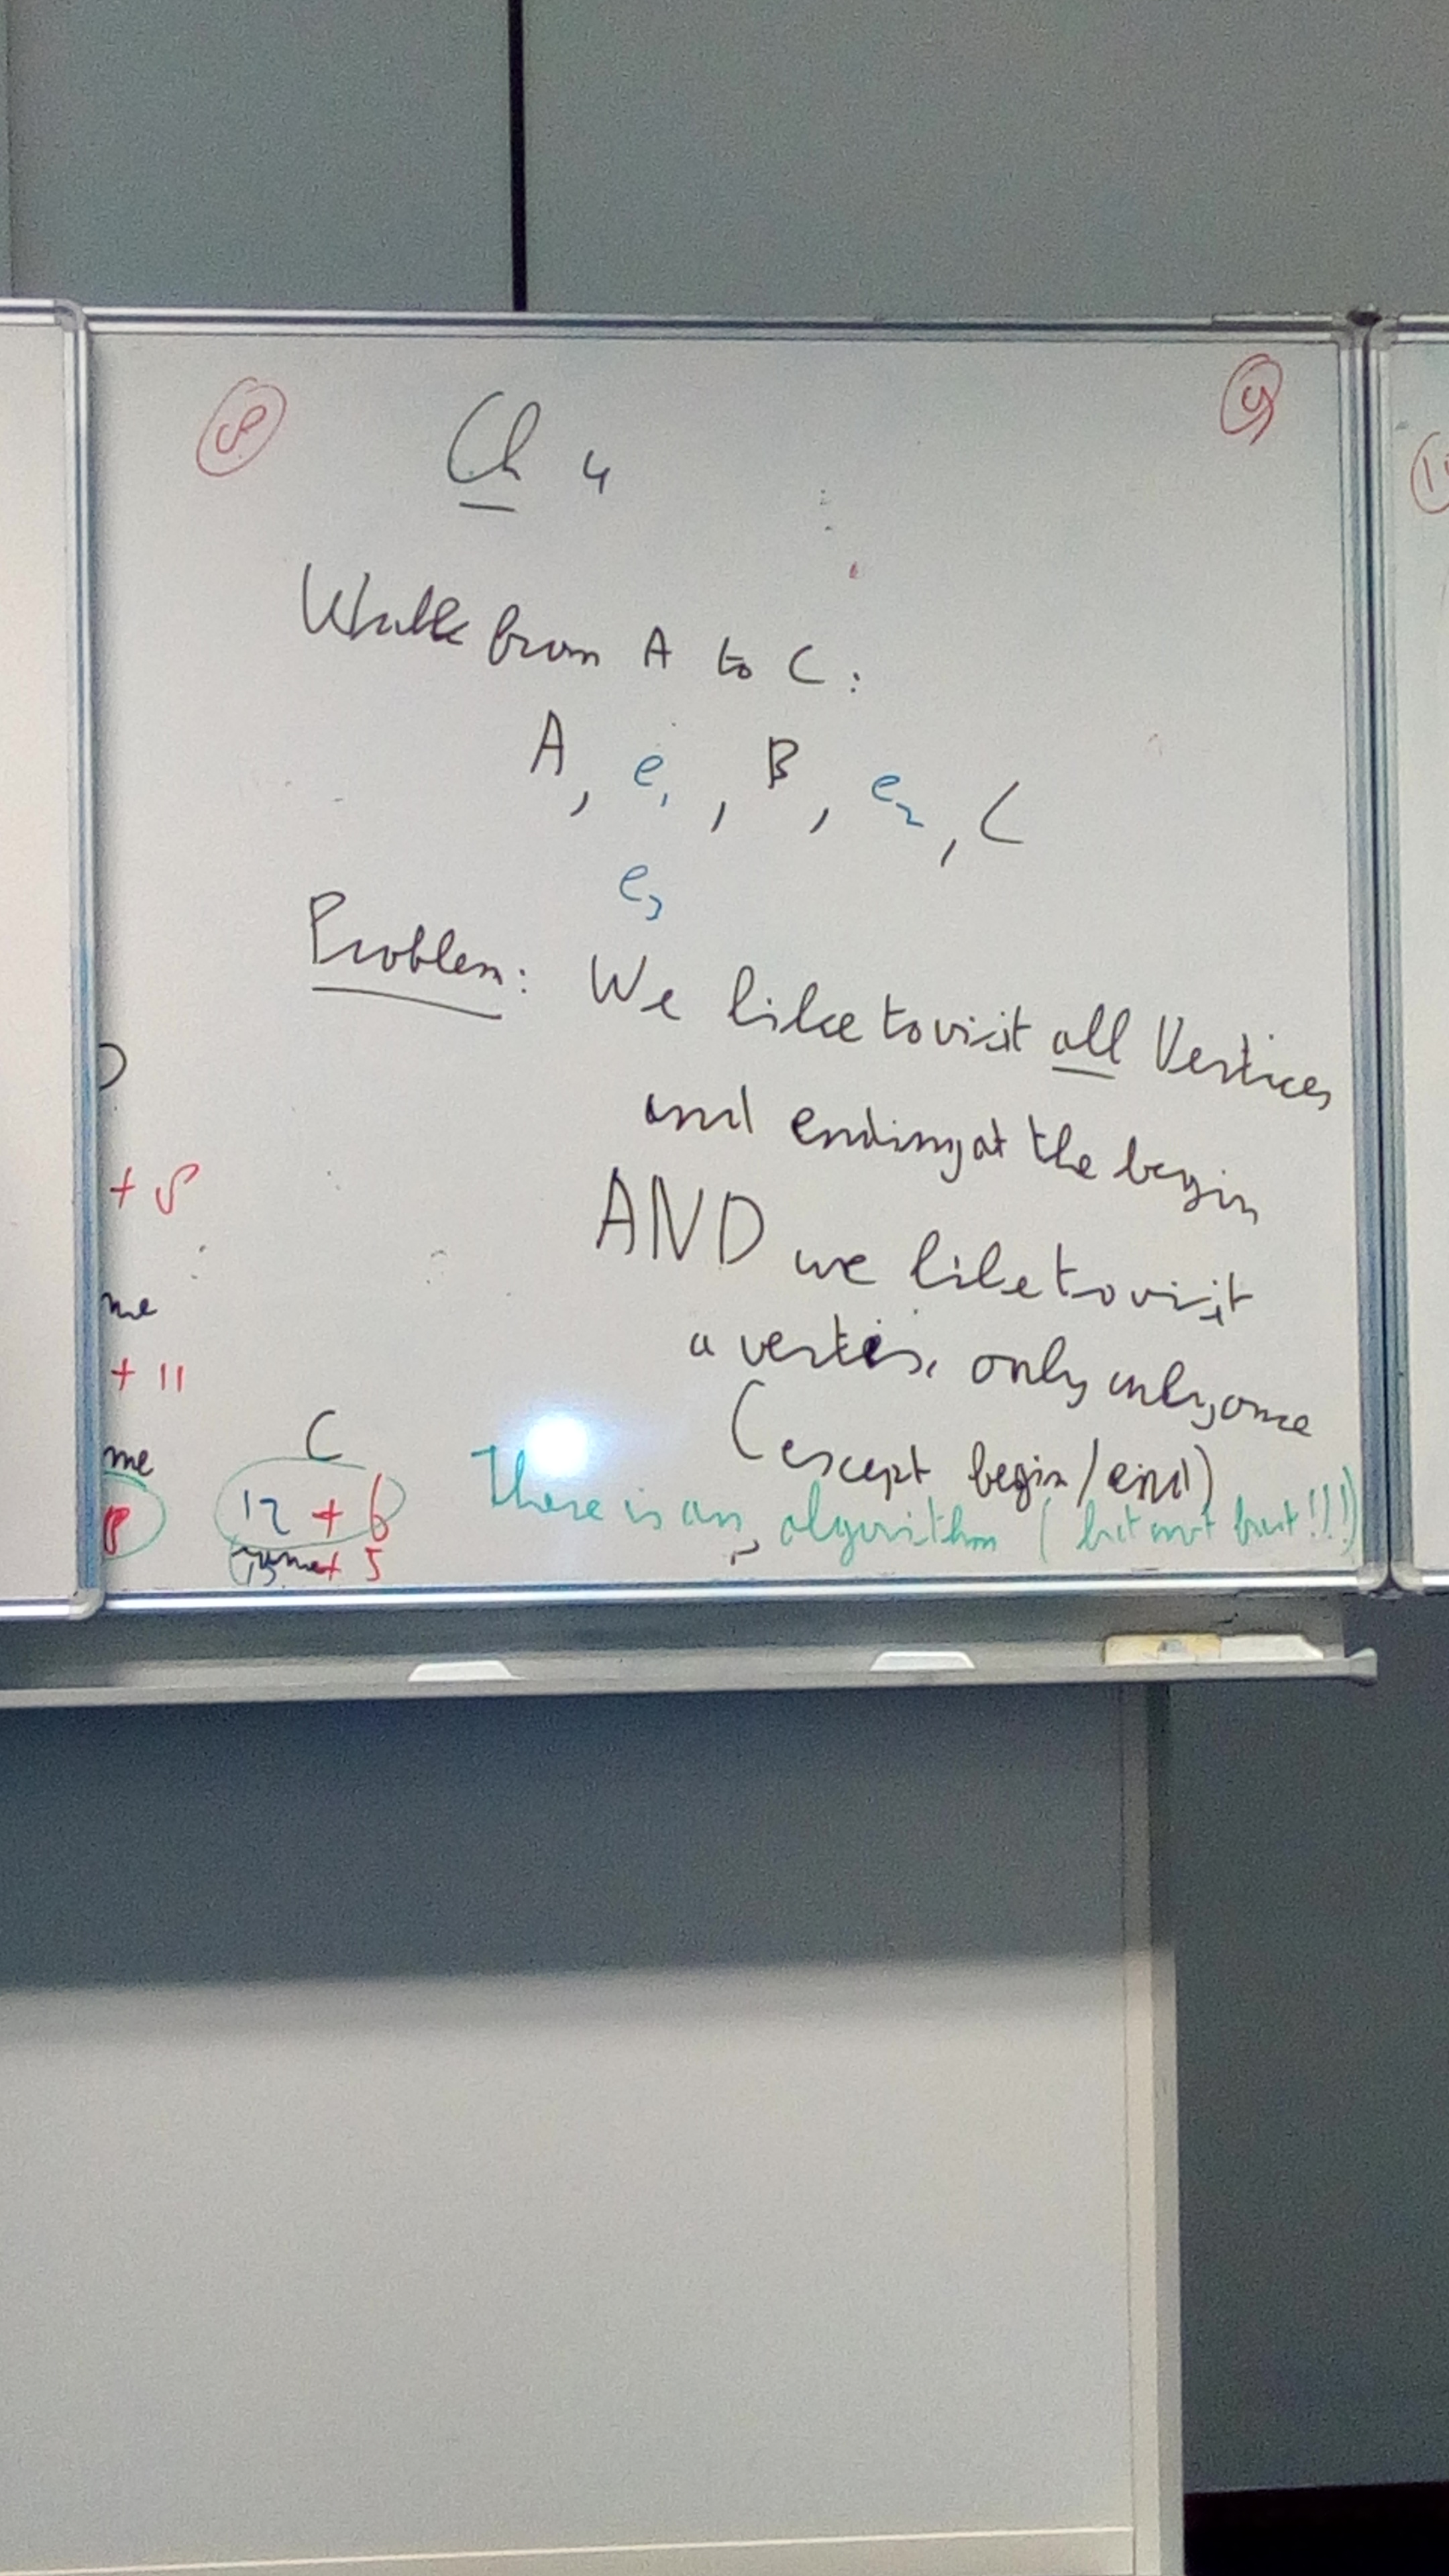 8
Ch 4
9
Walk from A to C:
A, e1, B, e2, C
e3
Problem: We like to visit all Vertices
and ending at the begin
AND we like to visit
a vertex, only only once
(except begin/end)
There is an algorithm (but not fast!!!)
+ 5
me
+ 11
me
C
12 + 6
+ 5